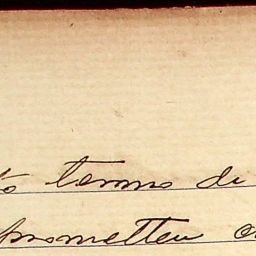 to termo di
prometteu